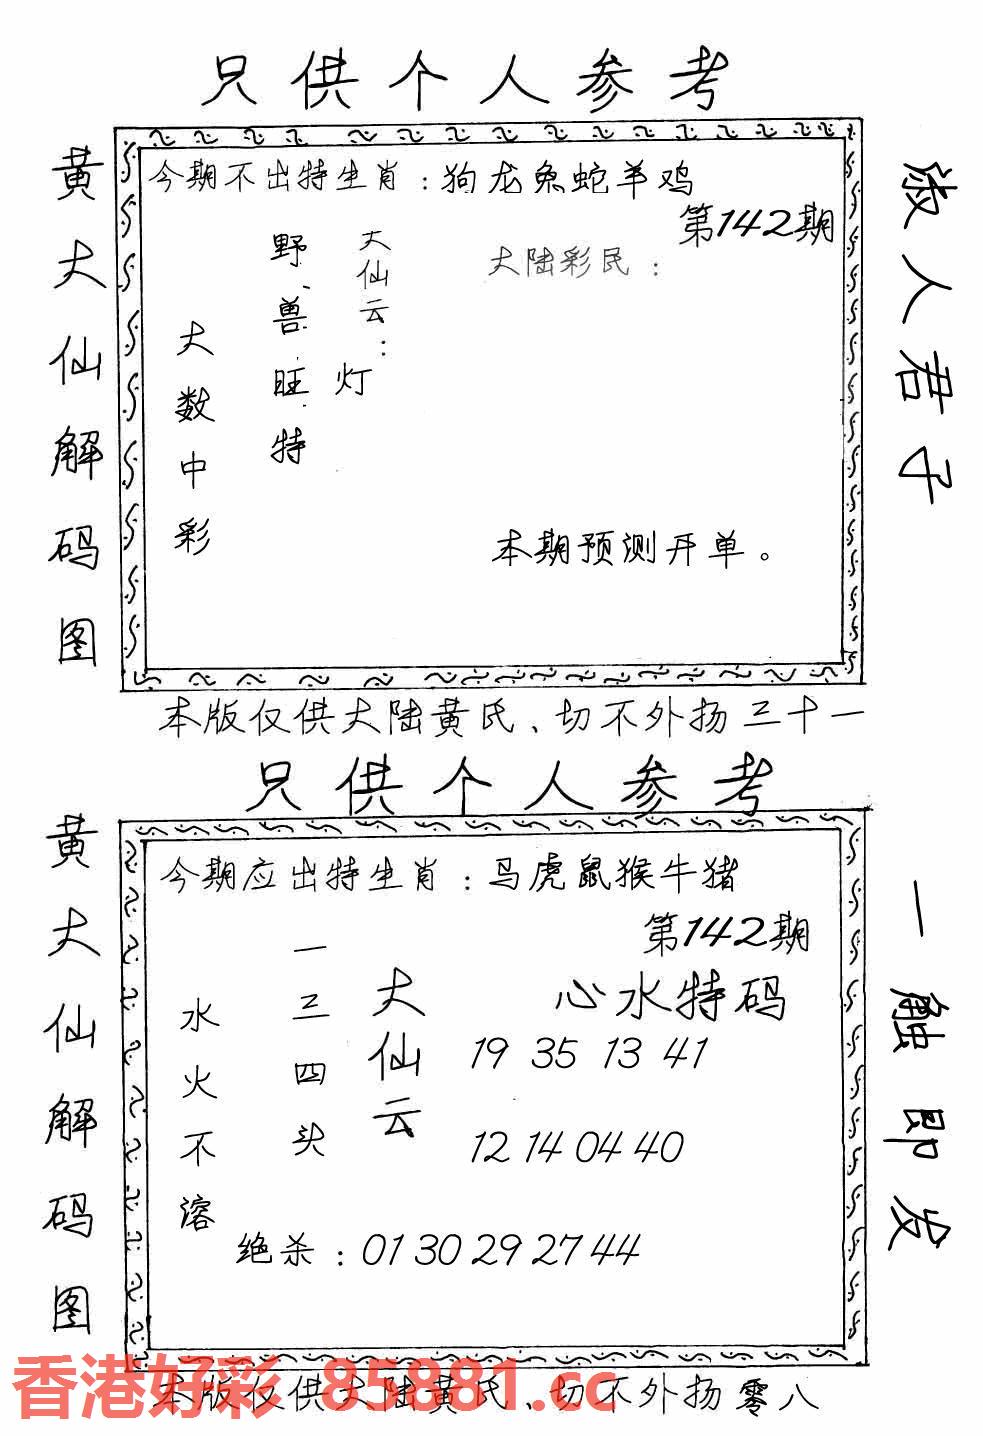 只供个人参考
黄大仙解码图
今期不出特生肖：狗龙兔蛇羊鸡
第142期
大陆彩民：
大仙云：
灯
野兽旺特
大数中彩
本期预测开单。
淑人君子
本版仅供大陆黄氏、切不外扬三十一
只供个人参考
黄大仙解码图
今期应出特生肖：马虎鼠猴牛猪
第142期
心水特码
19 35 13 41
12 14 04 40
大仙云
一三四头
水火不溶
绝杀：01 30 29 27 44
一触即发
香港好彩 85881.cc
本版仅供大陆黄氏、切不外扬零八